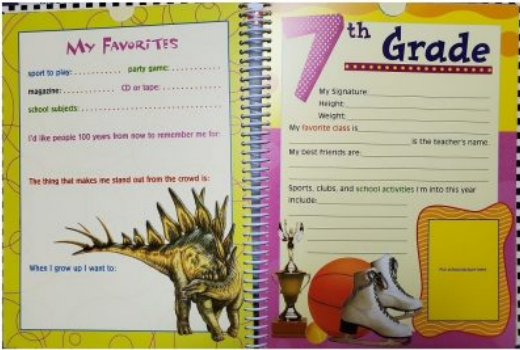 My FAVORiTES
sport to play: .......... party game: ..........
magazine: .......... CD or tape: ..........
school subjects: ..........
I'd like people 100 years from now to remember me for:
The thing that makes me stand out from the crowd is:
When I grow up I want to:
7th Grade
My Signature:
Height:
Weight:
My favorite class is
is the teacher's name.
My best friends are:
Sports, clubs, and school activities I'm into this year
include: